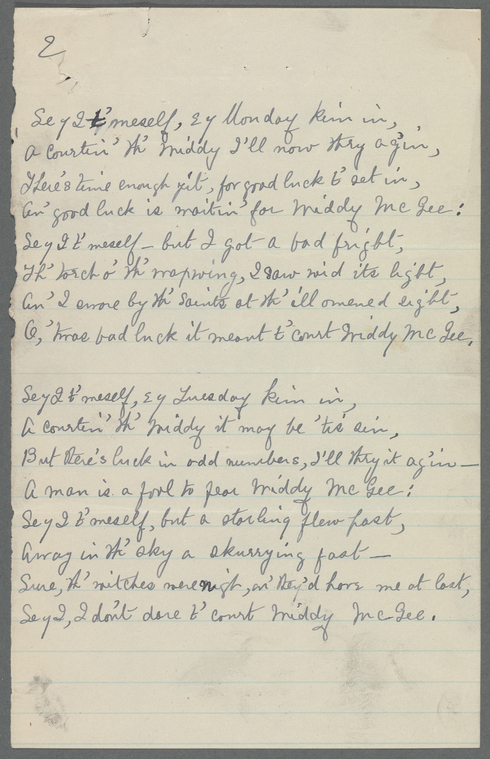 2
Sey I t' meself, ez Monday kim in,
A courtin' th' Widdy I'll now thry ag'in,
There's time enough yit, for good luck t' set in,
An' good luck is waitin' for Widdy McGee:
Sey I t' meself - but I got a bad fright,
Th' torch o' th' wapwing, I saw wid its light,
An' I swore by th' Saints at th' ill omened sight,
O, 'twas bad luck it meant t' court Widdy McGee.
Sey I t' meself, ez Tuesday kim in,
A courtin' th' Widdy it may be 'tis sin,
But there's luck in odd numbers, I'll thry it ag'in —
A man is a fool to fear Widdy McGee:
Sey I t' meself, but a starling flew past,
Away in th' sky a skurrying fast —
Sure, th' witches were nigh, an' they'd have me at last,
Sey I, I don't dare t' court Widdy McGee.